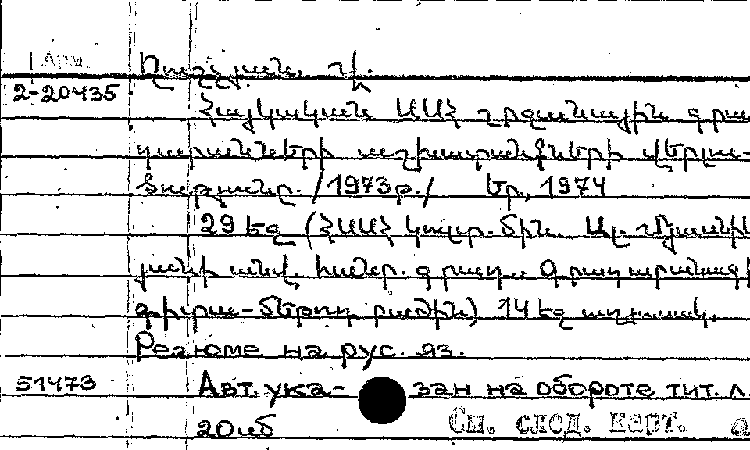 Арм.
2-20435
Հայկական ՍՍՀ շրջանային գրա
դարանների աշխատանքների վերլու-
ծությունը. /1973թ./ Եր, 1974
29 եզ (ՀՍՍՀ կուլտ. մին. Ալ. Մյասնիկ
յանի անվ. հանր. գրադ.. Գրադարանագի
14 եզ աղյուսակ.
Резюме на рус. яз.
51473 Авт. ука- зан на обороте тит. л.
См. след. карт.